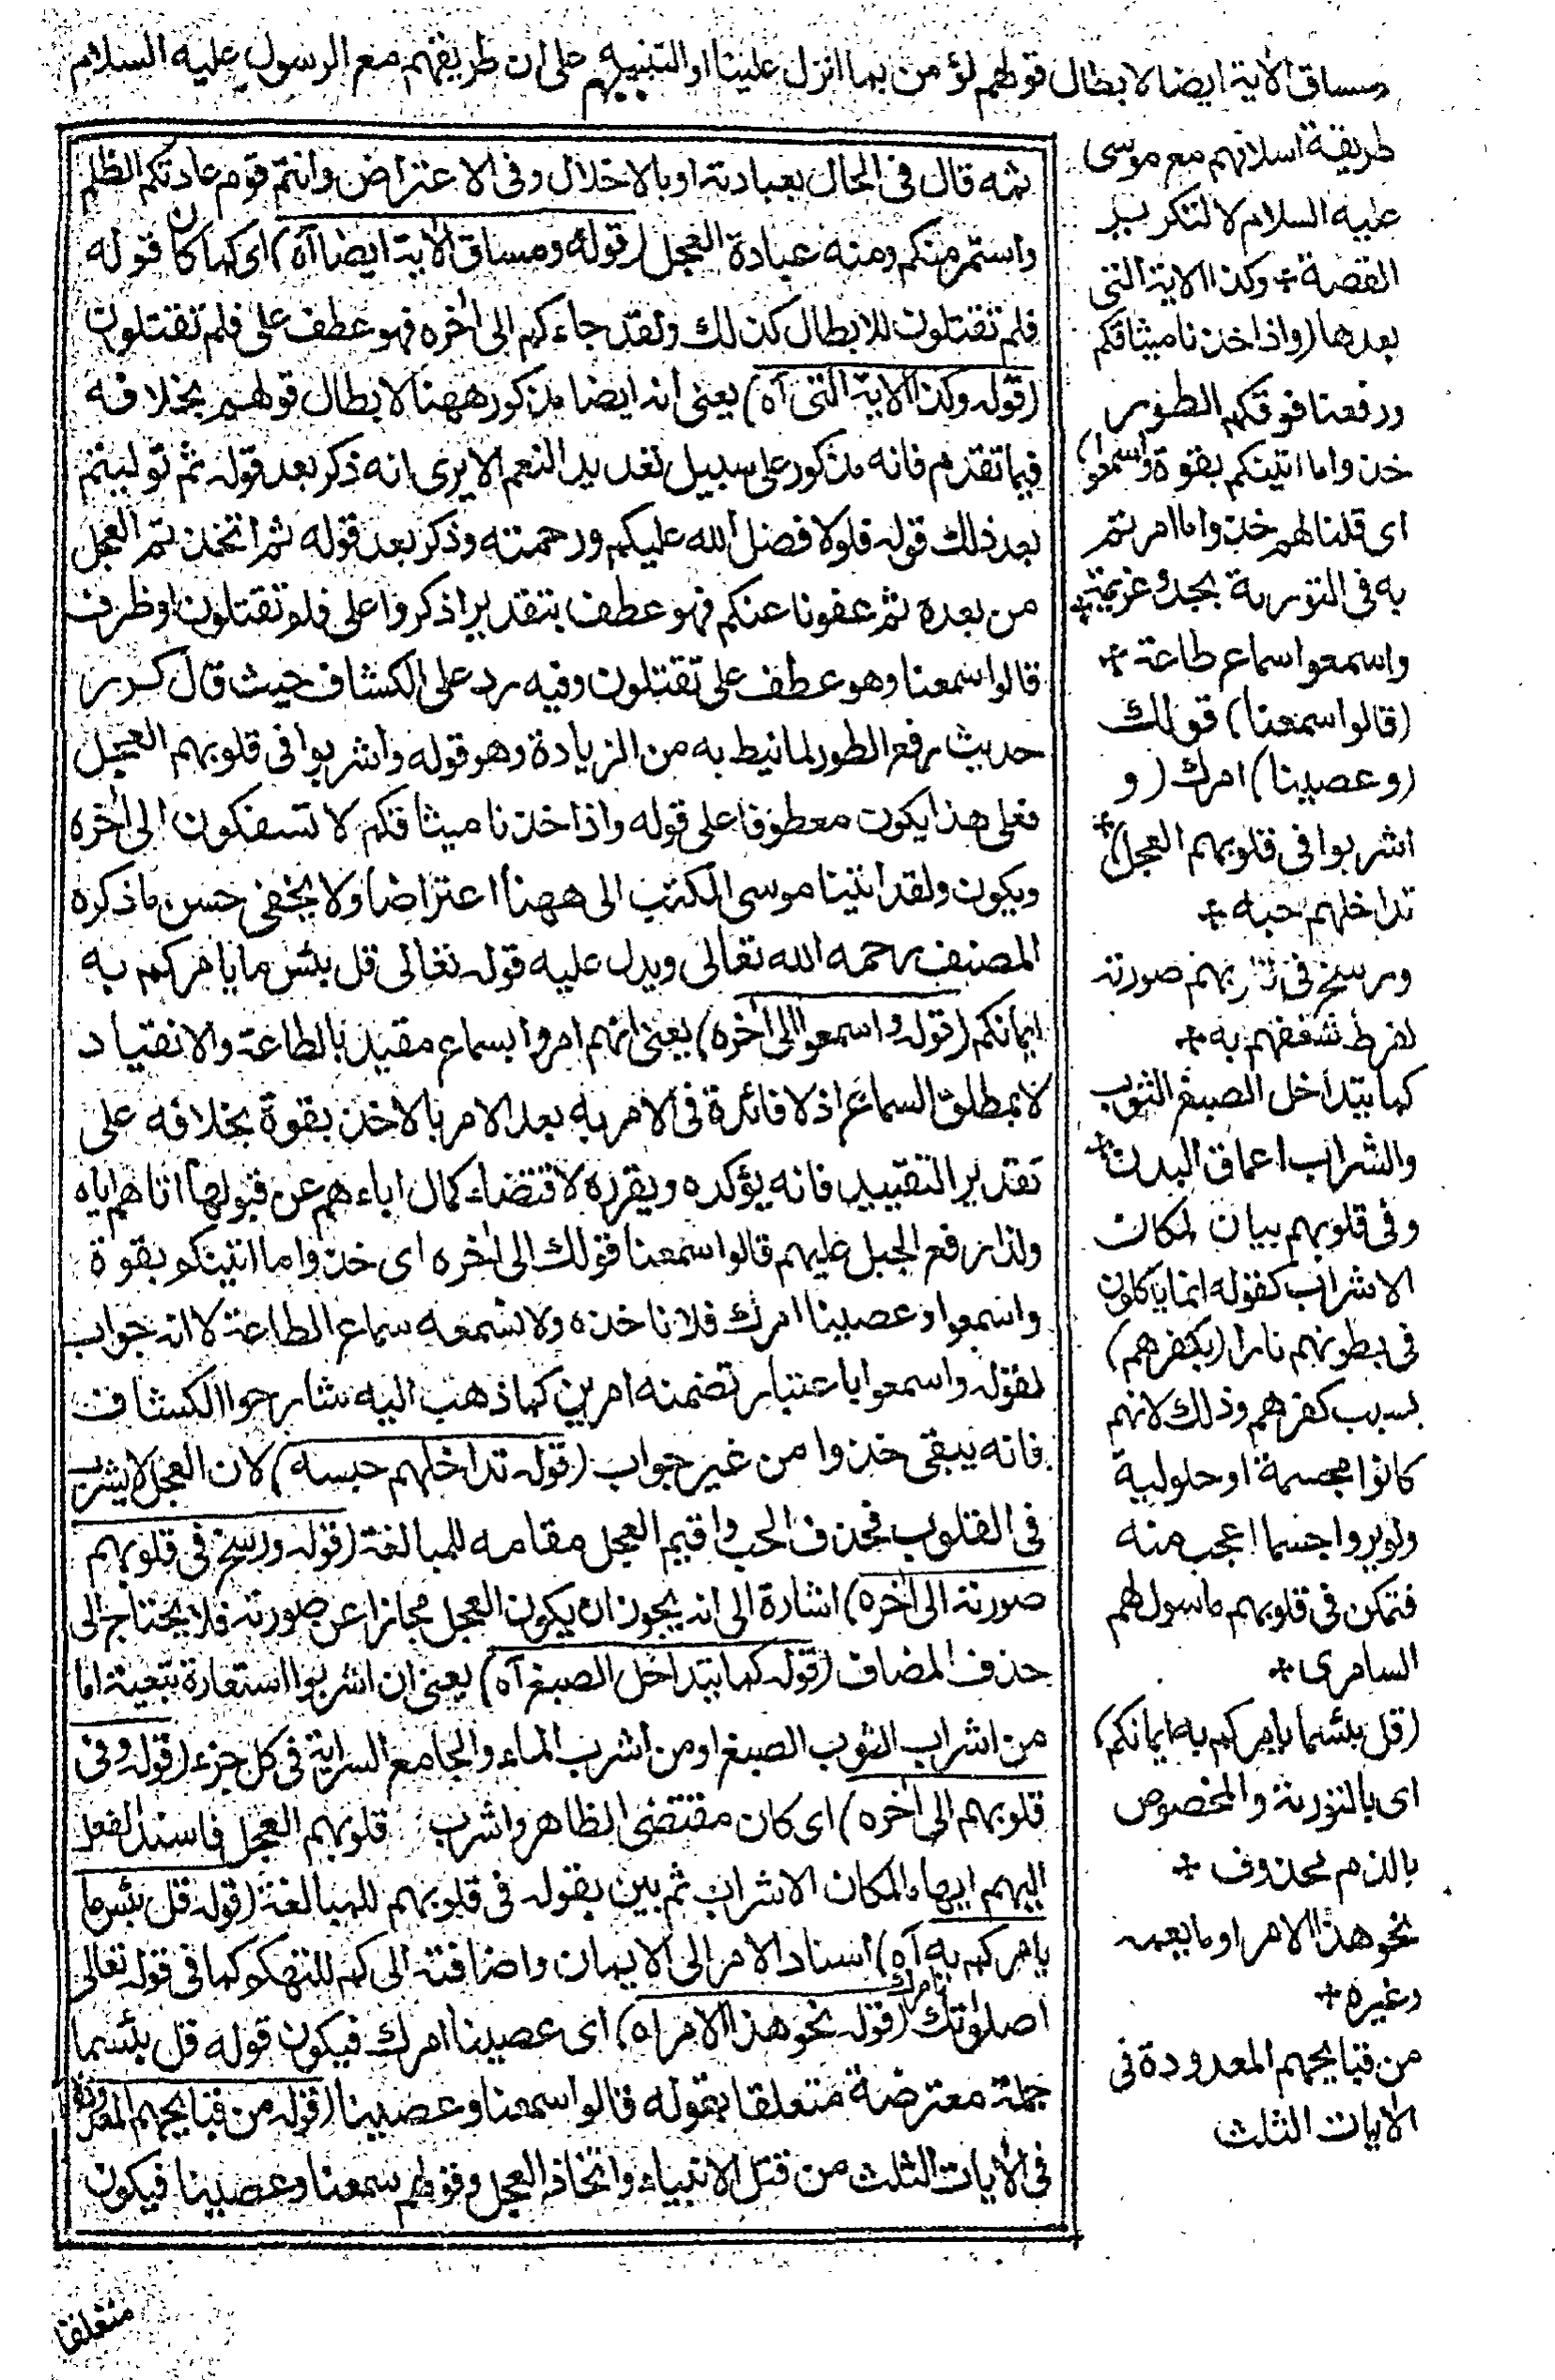 ومساق الاية ايضا لابطال قولهم نؤمن بما انزل علينا والتنبيه على ان طريقهم مع الرسول عليه السلام
طريقة اسلافهم مع موسى
عليه السلام لا لتكرير
القصة + وكذا الاية التى
بعدها (واذ اخذنا ميثاقكم
ورفعنا فوقكم الطور
خذوا ما اتينكم بقوة واسمعوا)
اى قلنا لهم خذوا ما امرتم
به فى التورية بجد وعزيمة +
واسمعوا سماع طاعة +
(قالوا سمعنا) قولك
(وعصينا) امرك (و
اشربوا فى قلوبهم العجل) +
تداخلهم حبه +
ورسخ فى قلوبهم صورته
لفرط شغفهم به +
كما يتداخل الصبغ الثوب
والشراب اعماق البدن +
وفى قلوبهم بيان لمكان
الاشراب كقوله انما ياكلون
فى بطونهم نارا (بكفرهم)
بسبب كفرهم وذلك لانهم
كانوا مجسمة او حلولية
ولم يروا جسما اعجب منه
فتمكن فى قلوبهم ما سول لهم
السامرى +
(قل بئسما يامركم به ايمانكم)
اى بالتورية والمخصوص
بالذم محذوف +
نحو هذا الامر او ما يعمه
وغيره +
من قبايحهم المعدودة فى
الايات الثلث
ثمه قال فى الحال بعبادته او بالاخلال وفى الاعتراض وانتم قوم عادتكم الظلم
واستمر منكم ومنه عبادة العجل (قوله ومساق الاية ايضا آه) اى كما كان قوله
فلم تقتلون للابطال كذلك ولقد جاءكم الى اخره فهو عطف على فلم تقتلون
(قوله وكذا الاية التى آه) يعنى انه ايضا مذكور ههنا لابطال قولهم بخلافه
فيما تقدم فانه مذكور على سبيل تعديد النعم الا يرى انه ذكر بعد قوله ثم توليتم
بعد ذلك قوله فلولا فضل الله عليكم ورحمته وذكر بعد قوله ثم اتخذتم العجل
من بعده ثم عفونا عنكم فهو عطف بتقدير اذكروا على فلم تقتلون او ظرف
قالوا سمعنا وهو عطف على تقتلون وفيه رد على الكشاف حيث قال كرر
حديث رفع الطور لما نيط به من الزيادة وهو قوله واشربوا فى قلوبهم العجل
فعلى هذا يكون معطوفا على قوله واذ اخذنا ميثاقكم لا تسفكون الى اخره
ويكون ولقد اتينا موسى الكتب الى ههنا اعتراضا ولا يخفى حسن ما ذكره
المصنف رحمه الله تعالى ويدل عليه قوله تعالى قل بئس ما يامركم به
ايمانكم (قوله واسمعوا الى اخره) يعنى انهم امروا بسماع مقيد بالطاعة والانقياد
لا بمطلق السماع اذ لا فائدة فى الامر به بعد الامر بالاخذ بقوة بخلافه على
تقدير التقييد فانه يؤكده ويقرره لاقتضاء كمال اباءهم عن قبولها اتاهم اياه
ولذا رفع الجبل عليهم قالوا سمعنا قولك الى اخره اى خذوا ما اتينكم بقوة
واسمعوا وعصينا امرك فلا ناخذه ولا نسمعه سماع الطاعة لا انه جواب
لقوله واسمعوا باعتبار تضمنه امرين كما ذهب اليه شارحوا الكشاف
فانه يبقى خذوا من غير جواب (قوله تداخلهم حبه) لان العجل لا يشرب
فى القلوب فحذف الحب واقيم العجل مقامه للمبالغة (قوله ورسخ فى قلوبهم
صورته الى اخره) اشارة الى انه يجوز ان يكون العجل مجازا عن صورته فلا يحتاج الى
حذف المضاف (قوله كما يتداخل الصبغ آه) يعنى ان اشربوا استعارة تبعية اما
من اشراب الثوب الصبغ او من اشرب الماء والجامع السراية فى كل جزء (قوله وفى
قلوبهم الى اخره) اى كان مقتضى الظاهر واشرب قلوبهم العجل فاسند الفعل
اليهم ايهاما لمكان الاشراب ثم بين بقوله فى قلوبهم للمبالغة (قوله قل بئس ما
يامركم به آه) اسناد الامر الى الايمان واضافته الى كم للتهكم كما فى قوله تعالى
اصلوتك تامرك (قوله نحو هذا الامر اه) اى عصينا امرك فيكون قوله قل بئسما
جملة معترضة متعلقا بقوله قالوا سمعنا وعصينا (قوله من قبايحهم المعدودة
فى الايات الثلث من قتل الانبياء واتخاذ العجل وقولهم سمعنا وعصينا فيكون
متعلقا